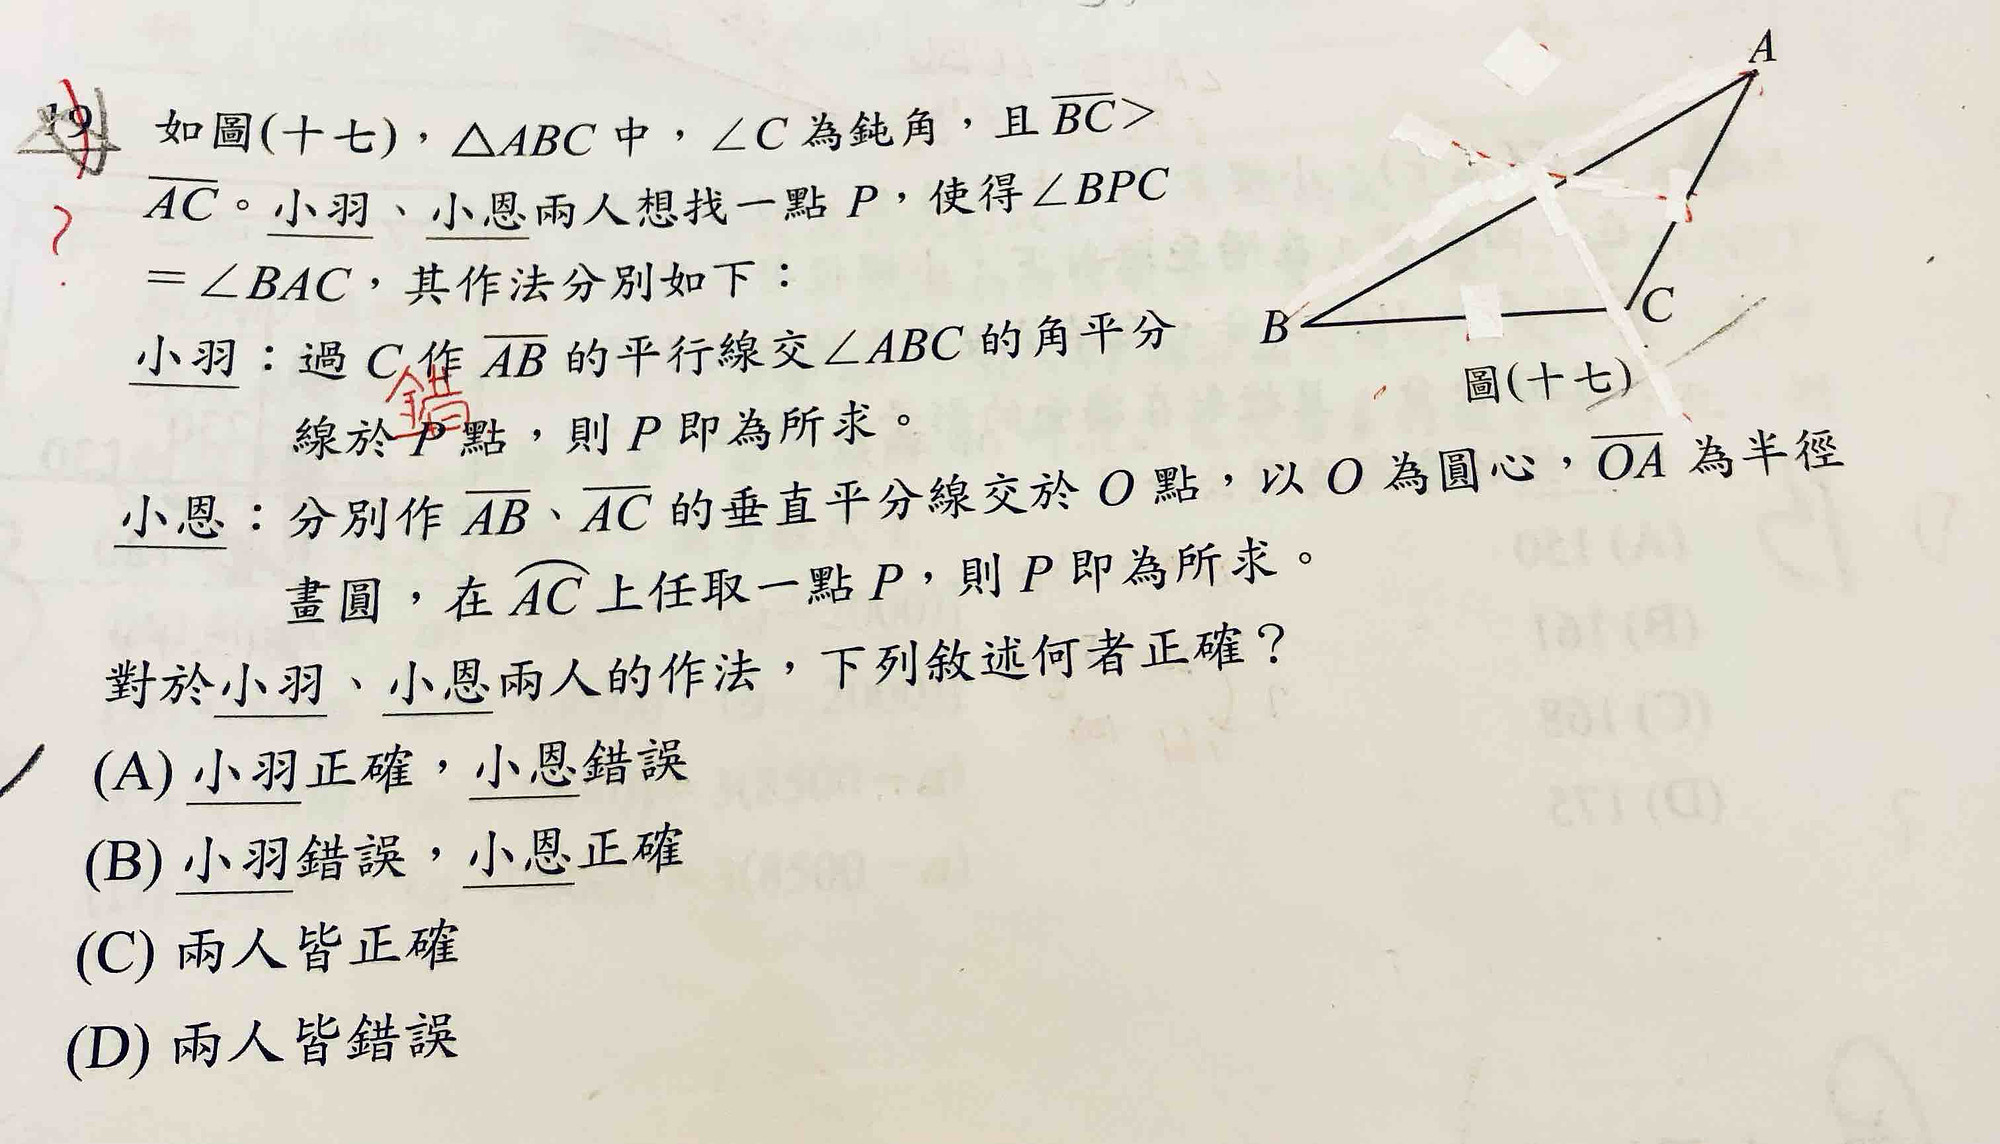 19. 如圖(十七)，△ABC中，∠C為鈍角，且BC>
AC。小羽、小恩兩人想找一點P，使得∠BPC
=∠BAC，其作法分別如下：
小羽：過C作AB的平行線交∠ABC的角平分
錯
線於P點，則P即為所求。
小恩：分別作AB、AC的垂直平分線交於O點，以O為圓心，OA為半徑
畫圓，在AC上任取一點P，則P即為所求。
對於小羽、小恩兩人的作法，下列敘述何者正確？
(A) 小羽正確，小恩錯誤
(B) 小羽錯誤，小恩正確
(C) 兩人皆正確
(D) 兩人皆錯誤
?
A
B
C
圖(十七)